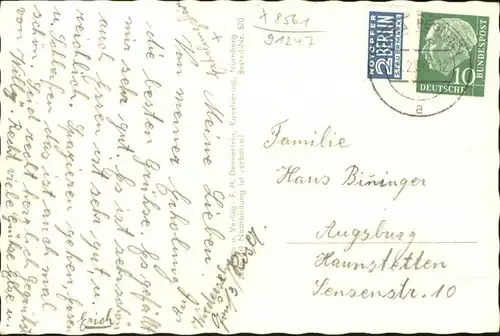 x 8561
91247
NOTOPFER
2 BERLIN
STEUERMARKE
10
DEUTSCHE
BUNDESPOST
a
Familie
Hans Bininger
Augsburg
Haunstetten
Sensenstr. 10
Verlag: F. H. Dennerlein, Kunstverlag, Nürnberg
Nachbildung ist verboten! Bestell-Nr. 520
Meine Lieben.
Von meiner Erholung
die besten Grüße. Es gefällt
mir sehr gut. Es ist sehr schön
auch. Essen ist sehr gut, u.
reichlich. Spazieren gehen,
u. das ist auch mal
schön. Seid recht herzlich gegrüßt
von Wally. Recht viele Grüße
Erich